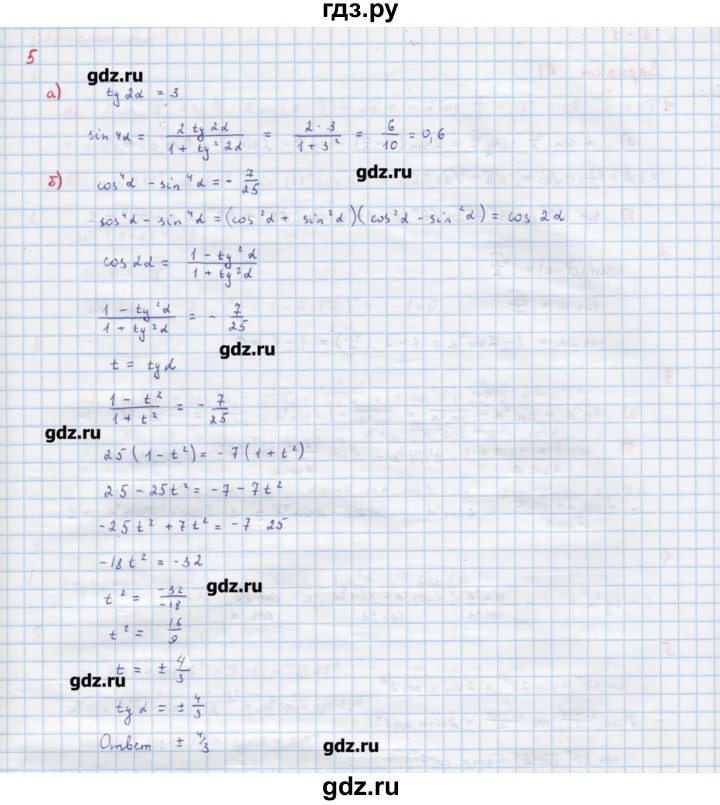 гдз.ру
5
gdz.ru
а) tg 2α = 3
sin 4α = 2 tg 2α / 1 + tg² 2α = 2 · 3 / 1 + 3² = 6/10 = 0,6
gdz.ru
б) cos⁴α - sin⁴α = - 7/25
cos⁴α - sin⁴α = (cos²α + sin²α)(cos²α - sin²α) = cos 2α
cos 2α = 1 - tg²α / 1 + tg²α
1 - tg²α / 1 + tg²α = - 7/25
gdz.ru
t = tg α
1 - t² / 1 + t² = - 7/25
gdz.ru
25(1 - t²) = -7(1 + t²)
25 - 25t² = -7 - 7t²
-25t² + 7t² = -7 25
-18t² = -32
gdz.ru
t² = -32/-18
t² = 16/9
t = ± 4/3
gdz.ru
tg α = ± 4/3
Ответ: ± 4/3
gdz.ru
gdz.ru